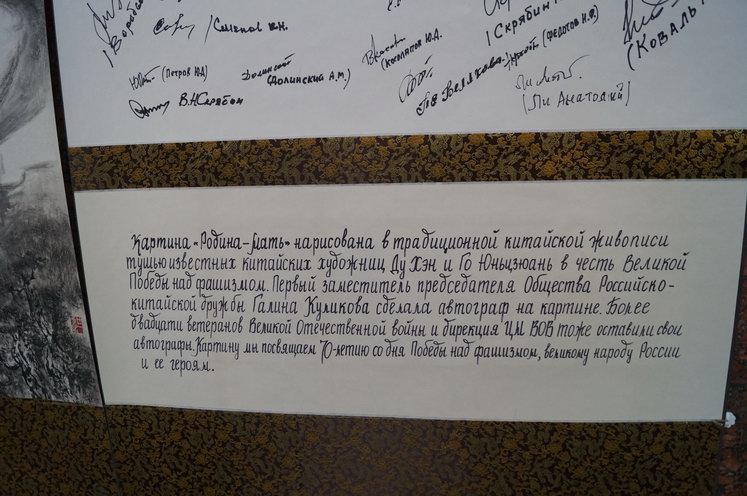 (Воробь
/Сменов В.Н.
(Скрябин
(Коваль
(Петров Ю.Д)
(Долинский А.М.)
(Космапов Ю.А.
(Федотов Н.Ф.)
В.Н Скрябин
(Ли Анатолий)
Картина «Родина-Мать» нарисована в традиционной китайской живописи
тушью известных китайских художниц Ду Хэн и Го Юньцзюань в честь Великой
Победы над фашизмом. Первый заместитель председателя Общества Российско-
китайской дружбы Галина Куликова сделала автограф на картине. Более
двадцати ветеранов Великой Отечественной войны и дирекция ЦМ ВОВ тоже оставили свои
автографы. Картину мы посвящаем 70-летию со дня Победы над фашизмом, великому народу России
и ее героям.